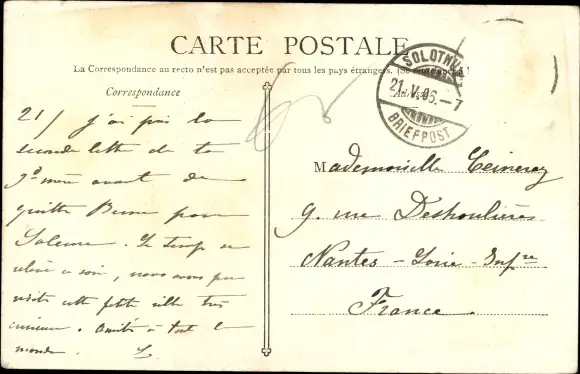 CARTE POSTALE
La Correspondance au recto n'est pas acceptée par tous les pays étrangers. (Se
Correspondance
21/ j'ai pris la
seconde lettre de ta
avant de
quitter Berne pour
Soleure. Le temps se
relève ce soir, nous avons pu
visiter cette petite ville très
curieuse. Amitiés à tout le
monde. L
SOLOTHURN
21.V.06.-7
BRIEFPOST
Adresse
Mademoiselle
9. rue Deshoulières
Nantes - Loire - Infre
France